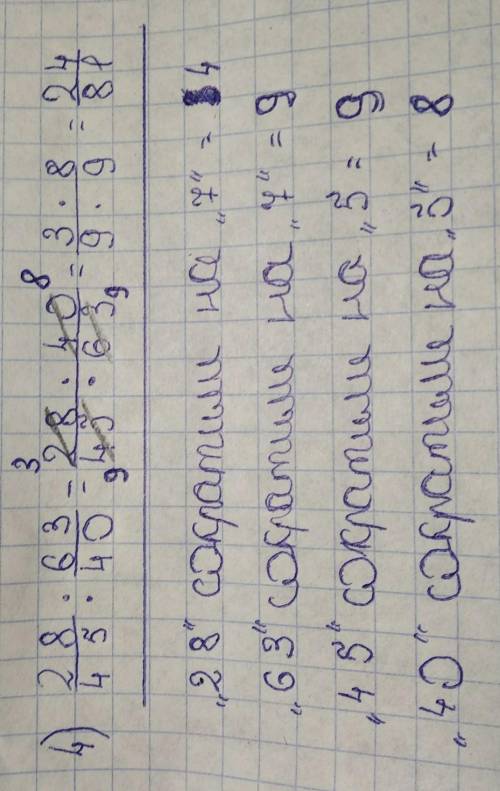 4) 28/45 · 63/40 = ³28 · 40⁸ / ₉45 · 63₉ = 3 · 8 / 9 · 9 = 24/81
„28" сократили на „7" = 4
„63" сократили на „7" = 9
„45" сократили на „5" = 9
„40" сократили на „5" = 8